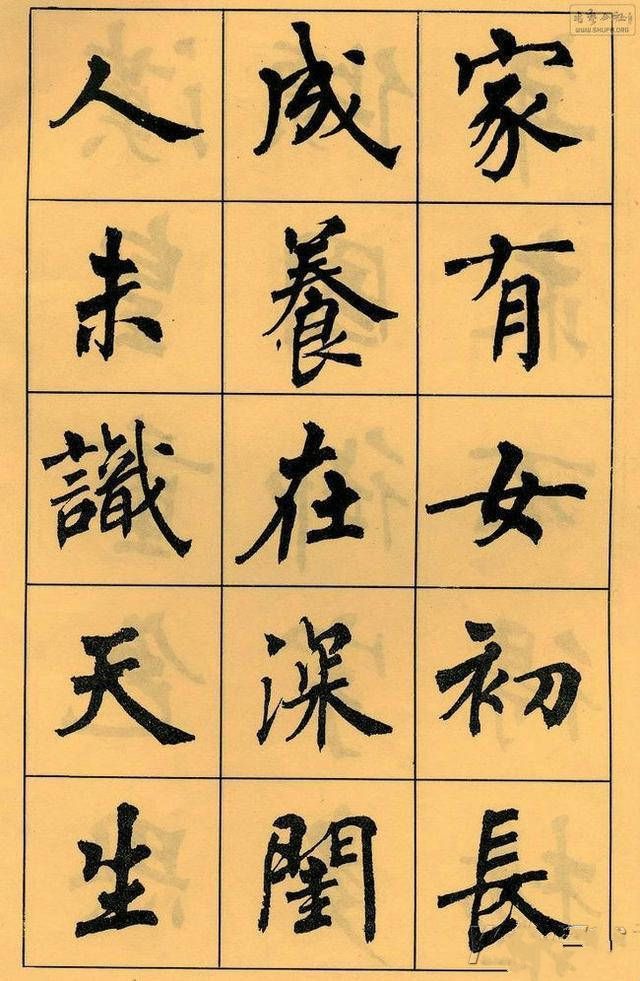 家有女初長
成養在深閨
人未識天生
WWW.SHUFA.ORG